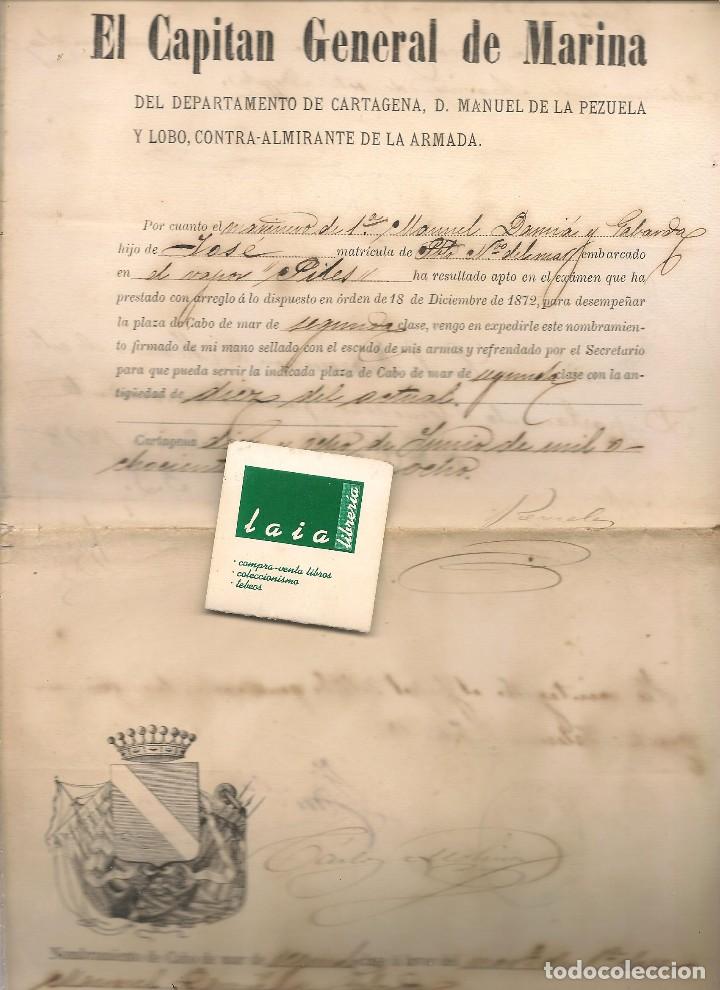 El Capitan General de Marina
DEL DEPARTAMENTO DE CARTAGENA, D. MANUEL DE LA PEZUELA
Y LOBO, CONTRA-ALMIRANTE DE LA ARMADA.
Por cuanto el marinero de 1.ª Manuel Damiá y Gabarda
hijo de José matrícula de embarcado
en el vapor "Piles" ha resultado apto en el exámen que ha
prestado con arreglo á lo dispuesto en órden de 18 de Diciembre de 1872, para desempeñar
la plaza de Cabo de mar de segunda clase, vengo en expedirle este nombramien-
to firmado de mi mano sellado con el escudo de mis armas y refrendado por el Secretario
para que pueda servir la indicada plaza de Cabo de mar de segunda clase con la an-
tigüedad de diez del actual.
Cartagena diez y ocho de Junio de mil o-
chocient ocho.
laia
librería
· compra-venta libros
· coleccionismo
· tebeos
Nombramiento de Cabo de mar de segunda clase á favor del
Manuel
todocoleccion.net